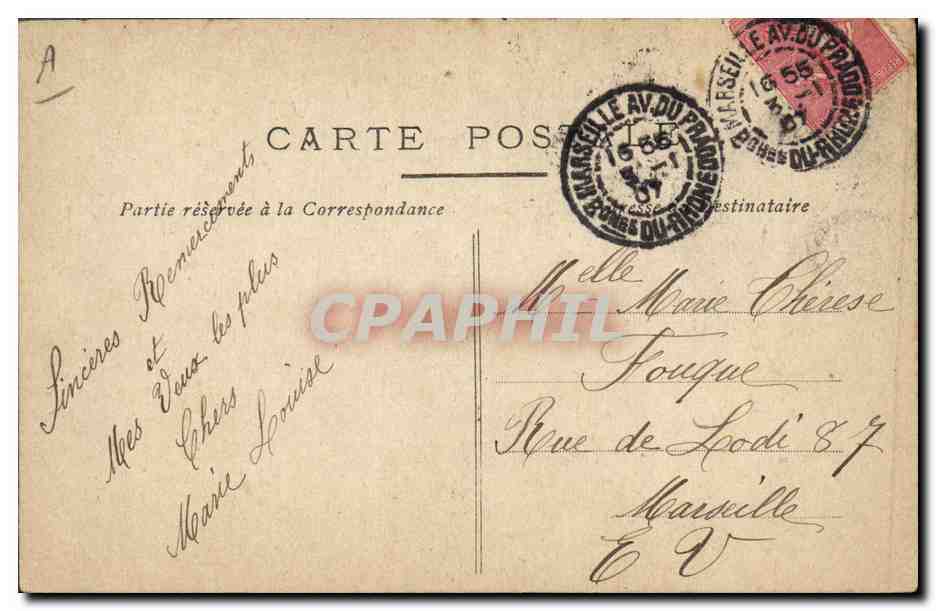 A
CARTE POSTALE
Partie réservée à la Correspondance
Adresse du Destinataire
MARSEILLE AV. DU PRADO
16 55
1
07
BCHES DU-RHONE
MARSEILLE AV. DU PRADO
16 55
1
07
BCHES DU-RHONE
Sincères Remerciements
et
Mes Veux les plus
Chers
Marie Louise
Melle Marie Thérese
Fouque
Rue de Lodi 87
Marseille
E V
CPAPHIL